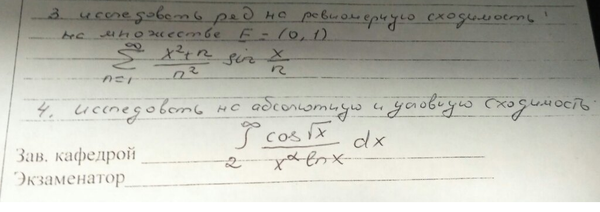 3. исследовать ряд на равномерную сходимость
на множестве E = (0, 1)
∞ ∑ n=1 (x²+n)/n² sin x/n
4. исследовать на абсолютную и условную сходимость
∞ ∫ 2 cos√x / (x^α ln x) dx
Зав. кафедрой
Экзаменатор